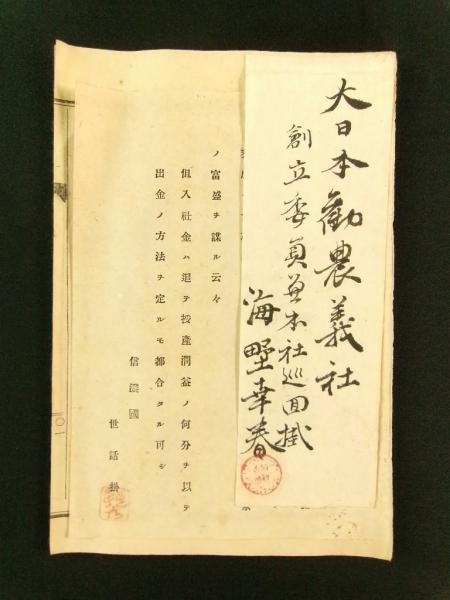 大日本勧農義社
創立委員兼本社巡回掛
海野幸春
ノ富盛ヲ謀ル云々
但入社金ハ追テ授産潤益ノ何分ヲ以テ
出金ノ方法ヲ定ルモ都合タル可シ
信濃國
世話掛